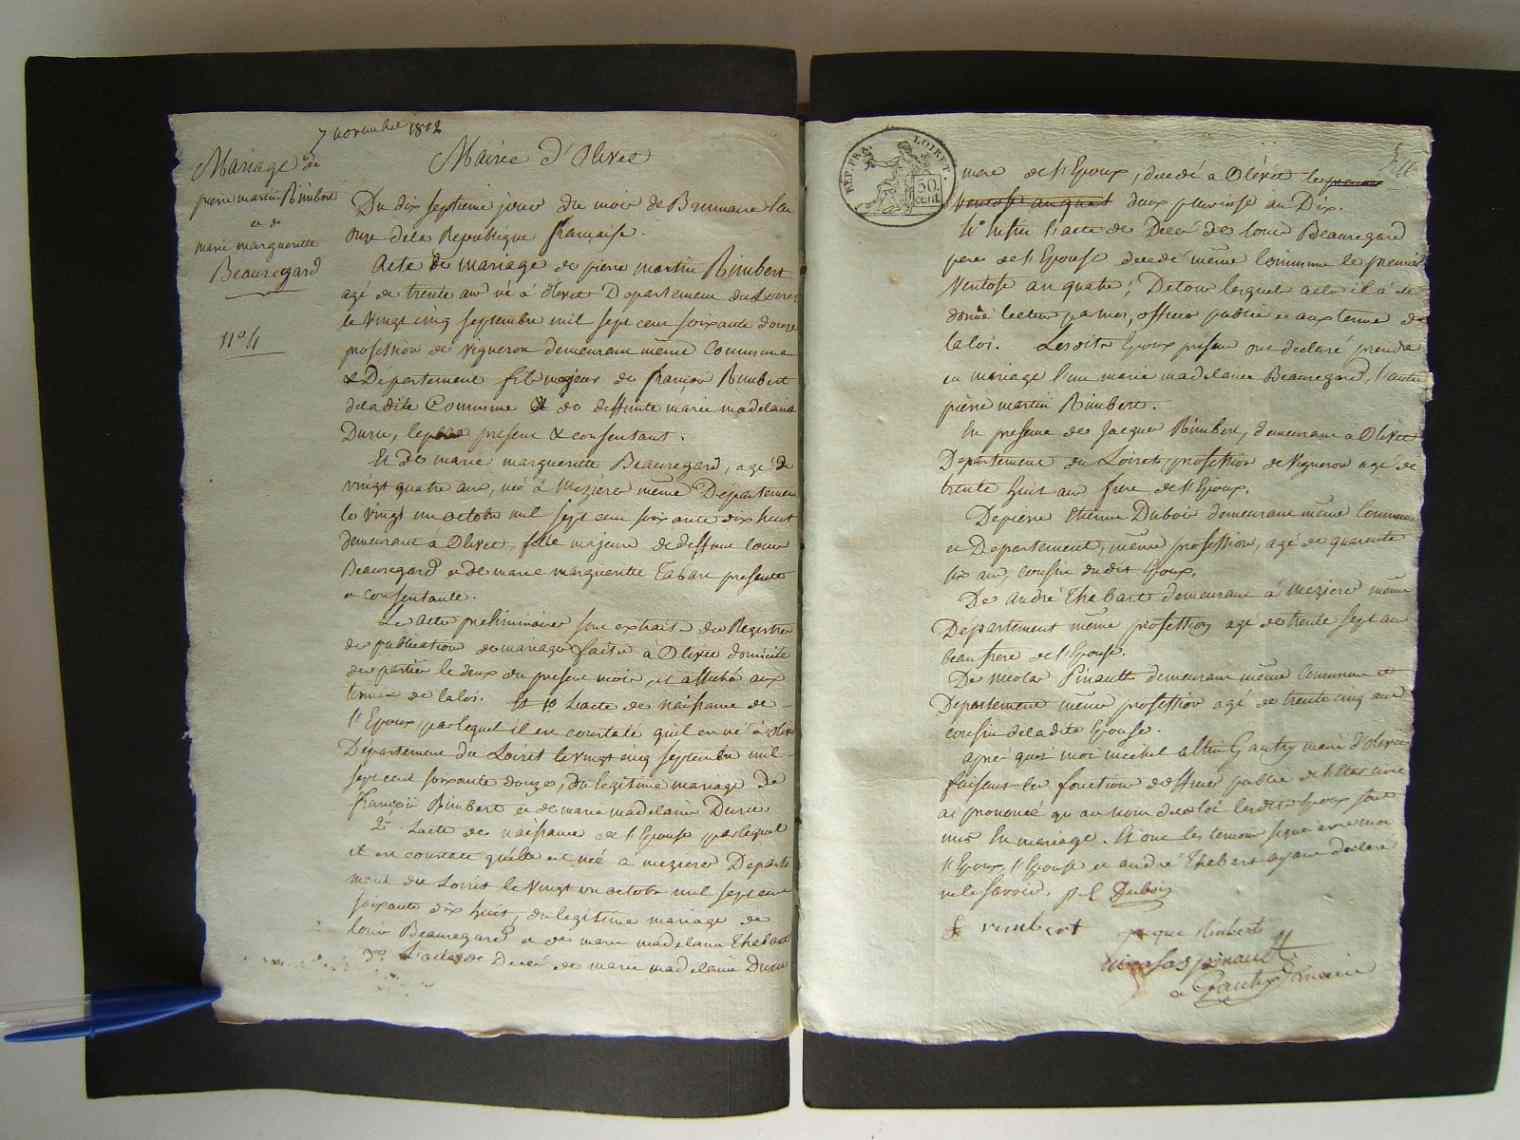 7 novembre 1802
Mariage de
pierre martin Rimbert
et de
marie marguerite
Beauregard
n° 4
Mairie d'Olivet
Du dix septieme jour du mois de Brumaire l'an
onze de la Republique française.
Acte de mariage de pierre martin Rimbert
agé de trente ans né à Olivet Departement du Loiret
le vingt cinq septembre mil sept cent soixante douze
profession de vigneron demeurant même Commune
& Departement fils majeur de françois Rimbert
de la dite Commune & de deffunte marie madelaine
Durie, le présent & consentant.
Et de marie marguerite Beauregard, agé de
vingt quatre ans, née à Meziere même Departement
le vingt un octobre mil sept cent soixante dix huit
demeurant a Olivet, fille majeure de deffunt louis
Beauregard et de marie marguerite Tabart presente
et consentante.
Les actes preliminaires sont extraits des Registres
de publication de mariage faite a Olivet domicile
des parties le deux du present mois, et affiché aux
termes de la loi. 1° L'acte de naissance de
l'Epoux, par lequel il est constaté qu'il est né à Olivet
Departement du Loiret le vingt cinq septembre mil
sept cent soixante douze, du légitime mariage de
françois Rimbert et de marie madelaine Durie
2° L'acte de naissance de l'Epouse par lequel
il est constaté qu'elle est née a meziere Departe
ment du Loiret le vingt un octobre mil sept cent
soixante dix huit, du legitime mariage de
louis Beauregard et de marie madelaine Thebart
3° L'acte de Décé de marie madelaine Durie
REP. FRA. LOIRET.
50
cent.
mere de l'Epoux, decedé a Olivet le premier
ventose an quatre deux pluviose an Dix.
4° Enfin l'acte de Décé de louis Beauregard
pere de l'Epouse decedé même commune le premier
Ventose an quatre; De tous lesquels actes il a été
donné lecture par moi, officier public et aux terme de
la loi. Lesdits Epoux présent ont declaré prendre
en mariage l'une marie madelaine Beauregard, l'autre
pierre martin Rimbert.
En presence de Jacques Rimbert, demeurant a Olivet
Departement du Loiret, profession de Vigneron agé de
trente huit ans frere de l'Epoux.
De pierre Etienne Dubois demeurant même Commune
et Departement, même profession, agé de quarente
six ans, cousin du dit Epoux.
De andré Thebart demeurant à Meziere même
Departement même profession agé de trente sept ans
beau frere de l'Epouse.
De nicolas Pinault demeurant même Commune et
Departement même profession agé de trente cinq ans
cousin de la dite Epouse.
apré quoi moi michel Gautry maire d'Olivet
faisant les fonction d'officier public de l'Etat civil
ai prononcé qu'au nom de la loi lesdits Epoux sont
unis En mariage. Et ont les temoins signé avec moi
l'Epoux, l'Epouse et andré Thebert ayant declaré
ne le savoir. p E Dubois
f rimbert jacque Rimbert
nicolas pinault
Gautry maire